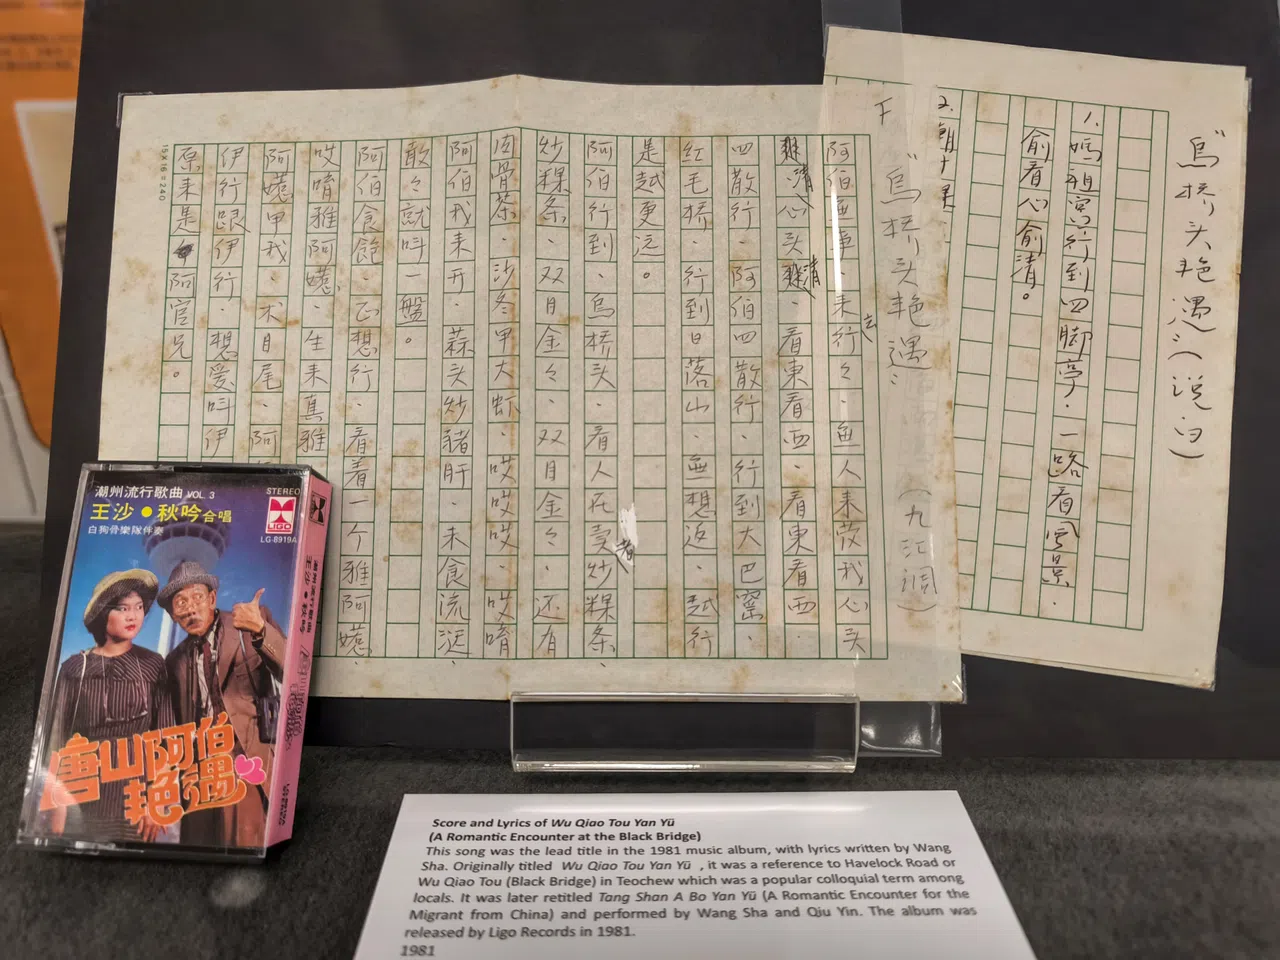 "烏橋头艳遇"(说白)
1.媽祖宫行到四脚亭.一路看風景.
俞看心俞清。
2.朝十
下
"烏橋头艳遇"：(九江调)
阿伯無事、来行々去、無人来我心头
清心头清、看東看西、看東看西.
四散行.阿伯四散行.行到大巴窰.
红毛橋.行到日落山.無想返.越行
是越更远。
阿伯行到、烏桥头.看人在賣炒粿条、
炒粿条、双目金々、双目金々、还有
肉骨茶.沙冬甲大虾.哎哎哎.哎唷
阿伯我来开.蒜头炒豬肝.未食流涎、
敢々就叫一盤。
阿伯食飽.正想行.看着一个雅阿嬑.
哎唷雅阿嬑.生来真雅
阿嬑甲我.术目尾.阿
伊行跟伊行.想爱叫伊
原来是阿官兄。
15X16=240
潮州流行歌曲 VOL.3
STEREO
王沙●秋吟合唱
白狗骨樂隊伴奏
LIGO
LG-8919A
唐山阿伯
艳遇
Score and Lyrics of Wu Qiao Tou Yan Yü
(A Romantic Encounter at the Black Bridge)
This song was the lead title in the 1981 music album, with lyrics written by Wang
Sha. Originally titled Wu Qiao Tou Yan Yü , it was a reference to Havelock Road or
Wu Qiao Tou (Black Bridge) in Teochew which was a popular colloquial term among
locals. It was later retitled Tang Shan A Bo Yan Yü (A Romantic Encounter for the
Migrant from China) and performed by Wang Sha and Qiu Yin. The album was
released by Ligo Records in 1981.
1981